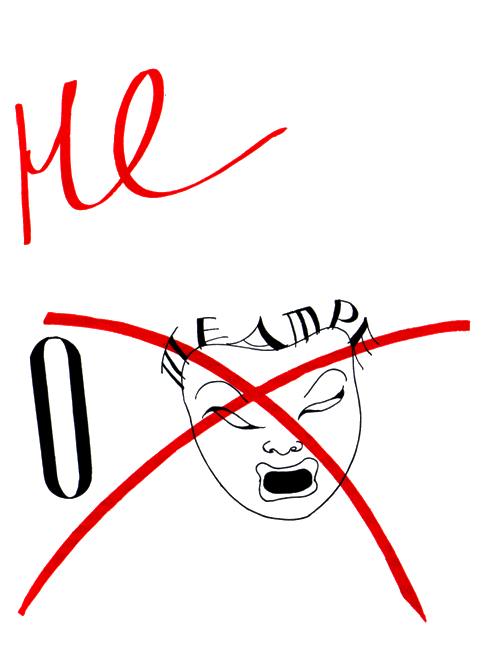 Не
О ТЕАТРЕ